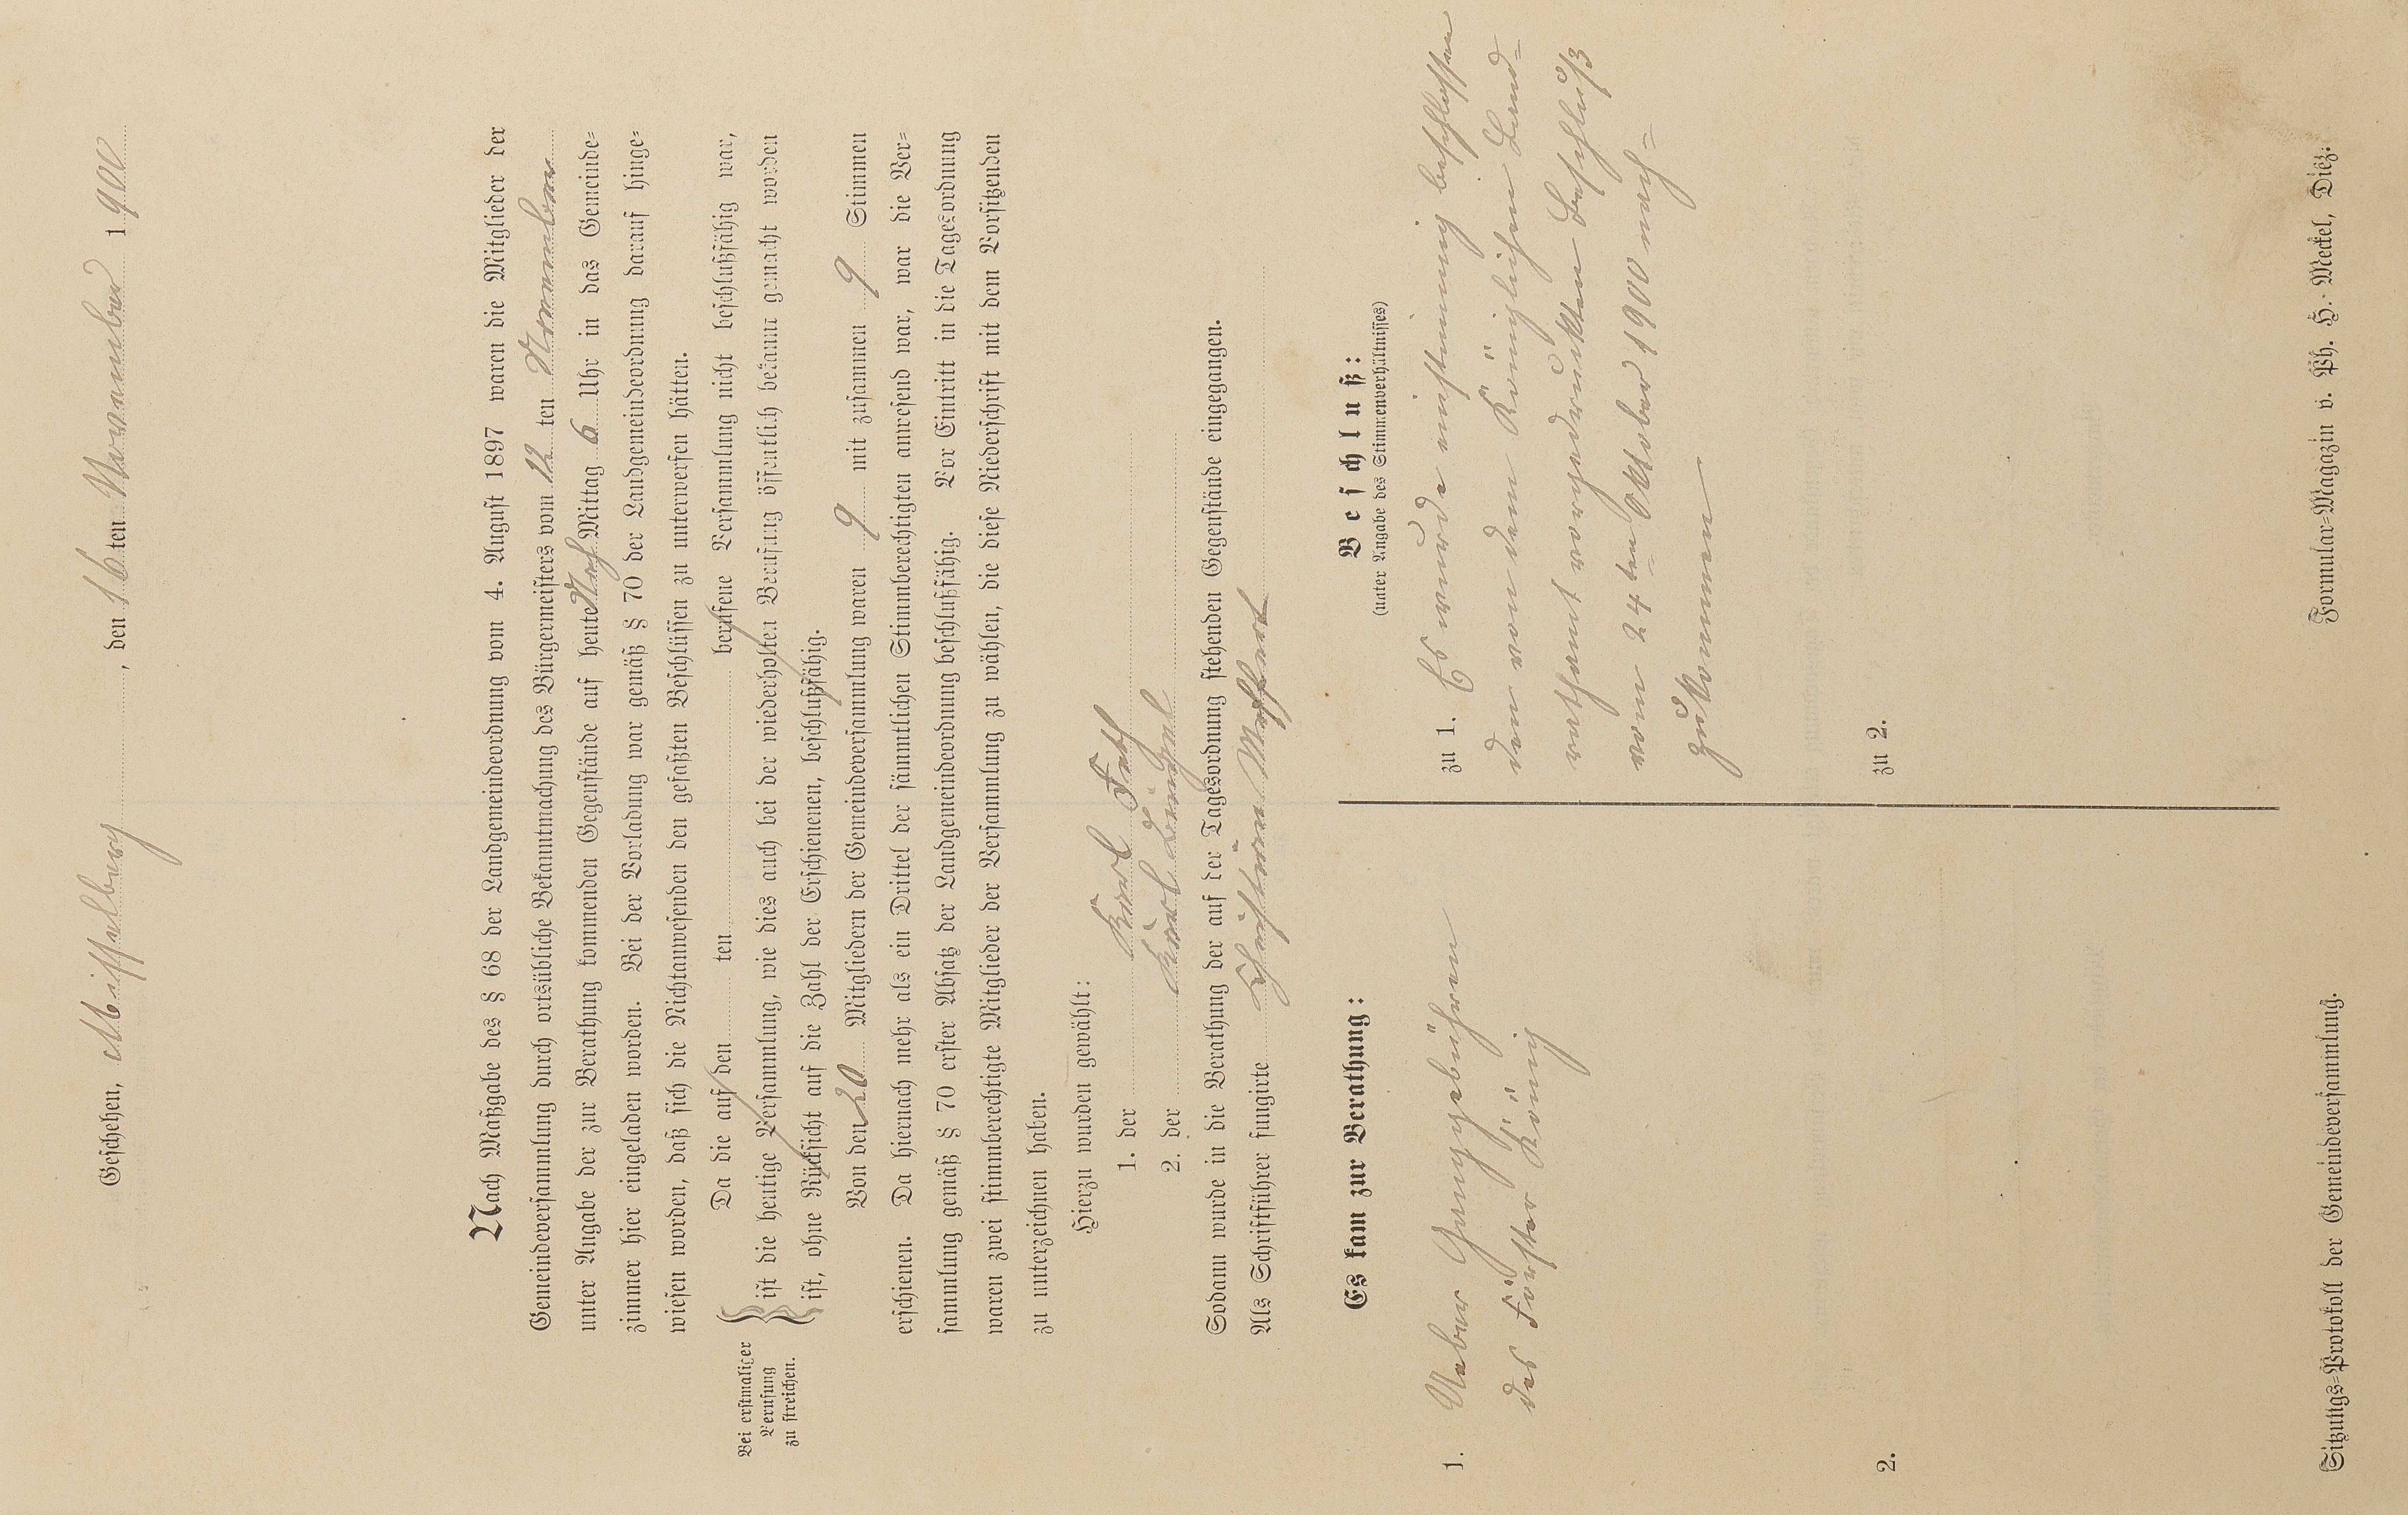 Geschehen, Misselberg, den 16ten November 1900
Nach Maßgabe des § 68 der Landgemeindeordnung vom 4. August 1897 waren die Mitglieder der
Gemeindeversammlung durch ortsübliche Bekanntmachung des Bürgermeisters vom 12 ten November
unter Angabe der zur Berathung kommenden Gegenstände auf heute Nach Mittag 6 Uhr in das Gemeinde=
zimmer hier eingeladen worden. Bei der Vorladung war gemäß § 70 der Landgemeindeordnung darauf hinge=
wiesen worden, daß sich die Nichtanwesenden den gefaßten Beschlüssen zu unterwerfen hätten.
Bei erstmaliger
Berufung
zu streichen.
Da die auf den ten berufene Versammlung nicht beschlußfähig war,
ist die heutige Versammlung, wie dies auch bei der wiederholten Berufung öffentlich bekannt gemacht worden
ist, ohne Rücksicht auf die Zahl der Erschienenen, beschlußfähig.
Von den 20 Mitgliedern der Gemeindeversammlung waren 9 mit zusammen 9 Stimmen
erschienen. Da hiernach mehr als ein Drittel der sämmtlichen Stimmberechtigten anwesend war, war die Ver=
sammlung gemäß § 70 erster Absatz der Landgemeindeordnung beschlußfähig. Vor Eintritt in die Tagesordnung
waren zwei stimmberechtigte Mitglieder der Versammlung zu wählen, die diese Niederschrift mit dem Vorsitzenden
zu unterzeichnen haben.
Hierzu wurden gewählt:
1. der Karl
2. der Karl
Sodann wurde in die Berathung der auf der Tagesordnung stehenden Gegenstände eingegangen.
Als Schriftführer fungirte
Es kam zur Berathung:
1. Ueber Ganggebühren
des Förster König
2.
Beschluß:
(unter Angabe des Stimmenverhältnisses)
zu 1. Es wurde einstimmig beschlossen
dem von dem Königlichen Land=
rathsamt vorgedruckten Beschluß
vom 24ten Oktober 1900 nach=
zukommen
zu 2.
Sitzungs=Protokoll der Gemeindeversammlung.
Formular=Magazin v. Ph. H. Meckel, Diez.